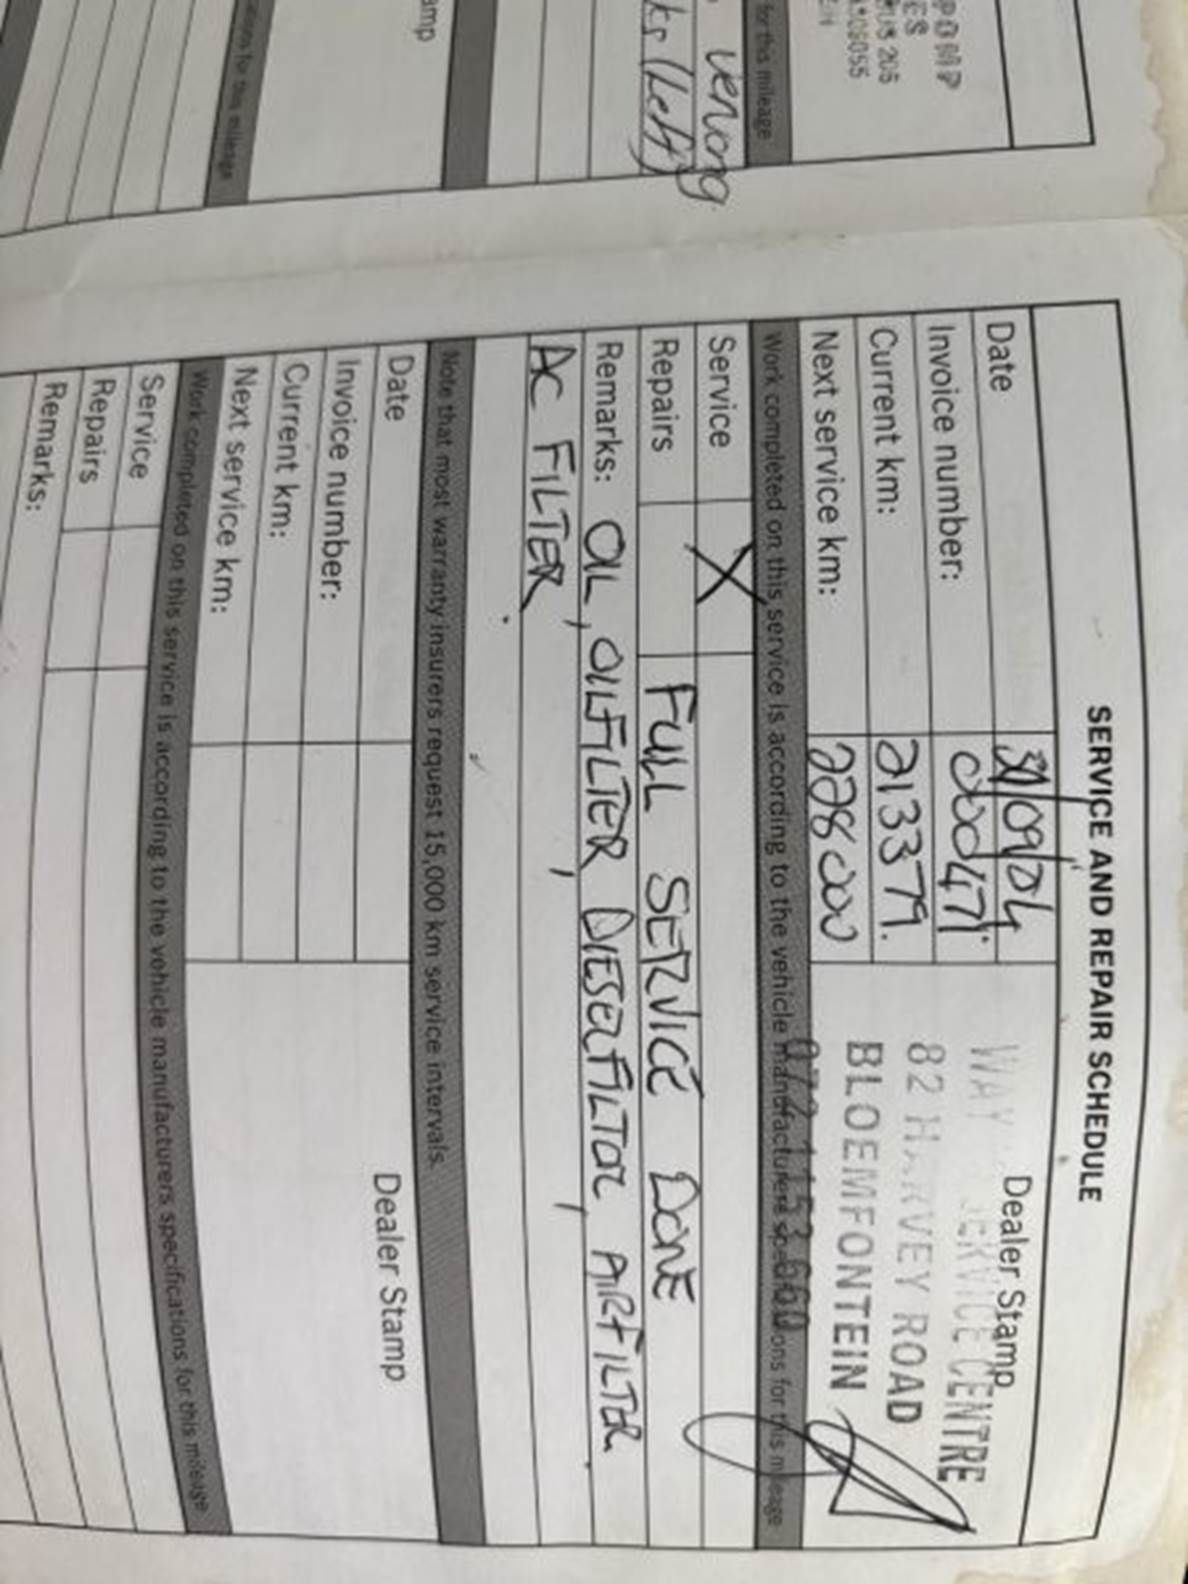 SERVICE AND REPAIR SCHEDULE
Date 30/09/04 Dealer Stamp
Invoice number: 000471
Current km: 213379.
Next service km: 228000
WAY SERVICE CENTRE
82 HARVEY ROAD
BLOEMFONTEIN
Work completed on this service is according to the vehicle manufacturers specifications for this mileage
Service X
Repairs FULL SERVICE DONE
Remarks: OIL, OILFILTER, DIESELFILTOR, AIRFILTER
AC FILTER
Note that most warranty insurers request 15,000 km service intervals.
Date Dealer Stamp
Invoice number:
Current km:
Next service km:
Work completed on this service is according to the vehicle manufacturers specifications for this mileage
Service
Repairs
Remarks:
for this mileage
for this mileage